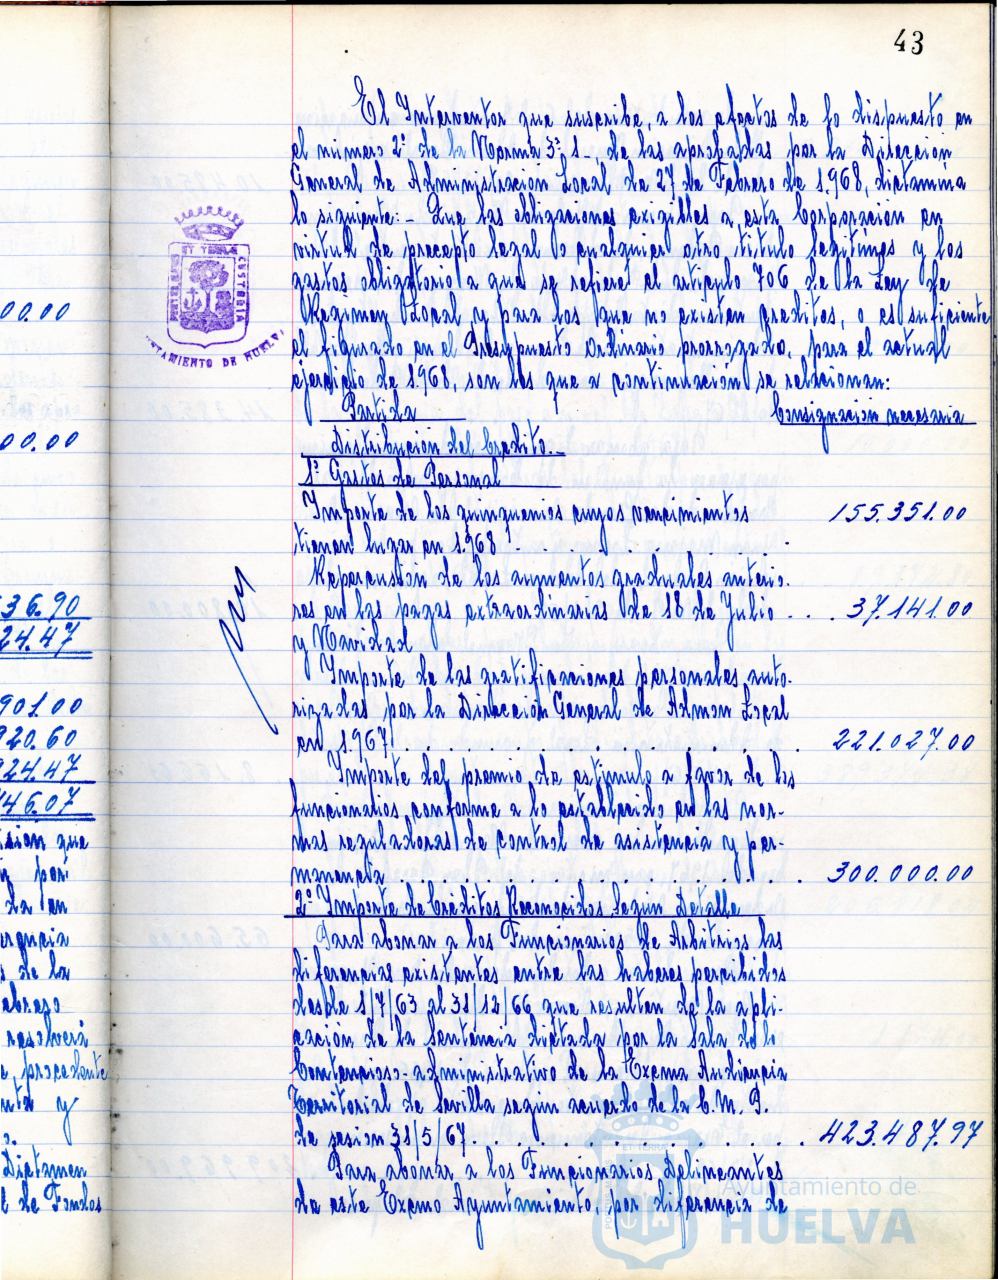 43
El Interventor que suscribe, a los efectos de lo dispuesto en
el numero 2º de la Norma 3ª 1_, de las aprobadas por la Dirección
General de Administración Local de 27 de Febrero de 1.968, dictamina
lo siguiente:- Que las obligaciones exigibles a esta Corporación en
virtud de precepto legal o cualquier otro titulo legitimos y los
gastos obligatorio a que se refiere el articulo 706 de la Ley de
Regimen Local y para los que no existen creditos, o es suficiente
el figurado en el Presupuesto Ordinario prorrogado, para el actual
ejercicio de 1.968, son los que a continuación se relacionan:
Partida Consignación necesaria
Distribución del Credito._
1º Gastos de Personal
Importe de los quinquenios cuyos vencimientos 155.351.00
tienen lugar en 1.968
Repercusión de los aumentos graduales anterio-
res en las pagas extraordinarias de 18 de Julio ... 37.141.00
y Navidad
Importe de las gratificaciones personales auto-
rizadas por la Dirección General de Admon Local
en 1.967 . . . . . . . . . . 221.027.00
Importe del premio de estimulo a favor de los
funcionarios conforme a lo establecido en las nor-
mas reguladoras de control de asistencia y per-
manencia . . . . . . . . . . 300.000.00
2º Importe de Créditos Reconocidos Según Detalle
Para abonar a los Funcionarios de Arbitrios las
diferencias existentes entre los haberes percibidos
desde 1/7/63 al 31/12/66 que resulten de la apli-
cación de la Sentencia dictada por la Sala de lo
Contencioso-administrativo de la Excma Audiencia
Territorial de Sevilla según acuerdo de la C.M.P.
de sesión 31/5/67 . . . . . . . . . . 423.487.97
Para abonar a los Funcionarios Delineantes
de este Excmo Ayuntamiento, por diferencia de
PORTUS MARIS ET TERRAE CUSTODIA
AYUNTAMIENTO DE HUELVA
00.00
00.00
36.90
24.47
901.00
920.60
924.47
46.07
sion que
por
da en
s de la
resolverá
e, procedente
y
Dictamen
de Fondos
Ayuntamiento de
HUELVA